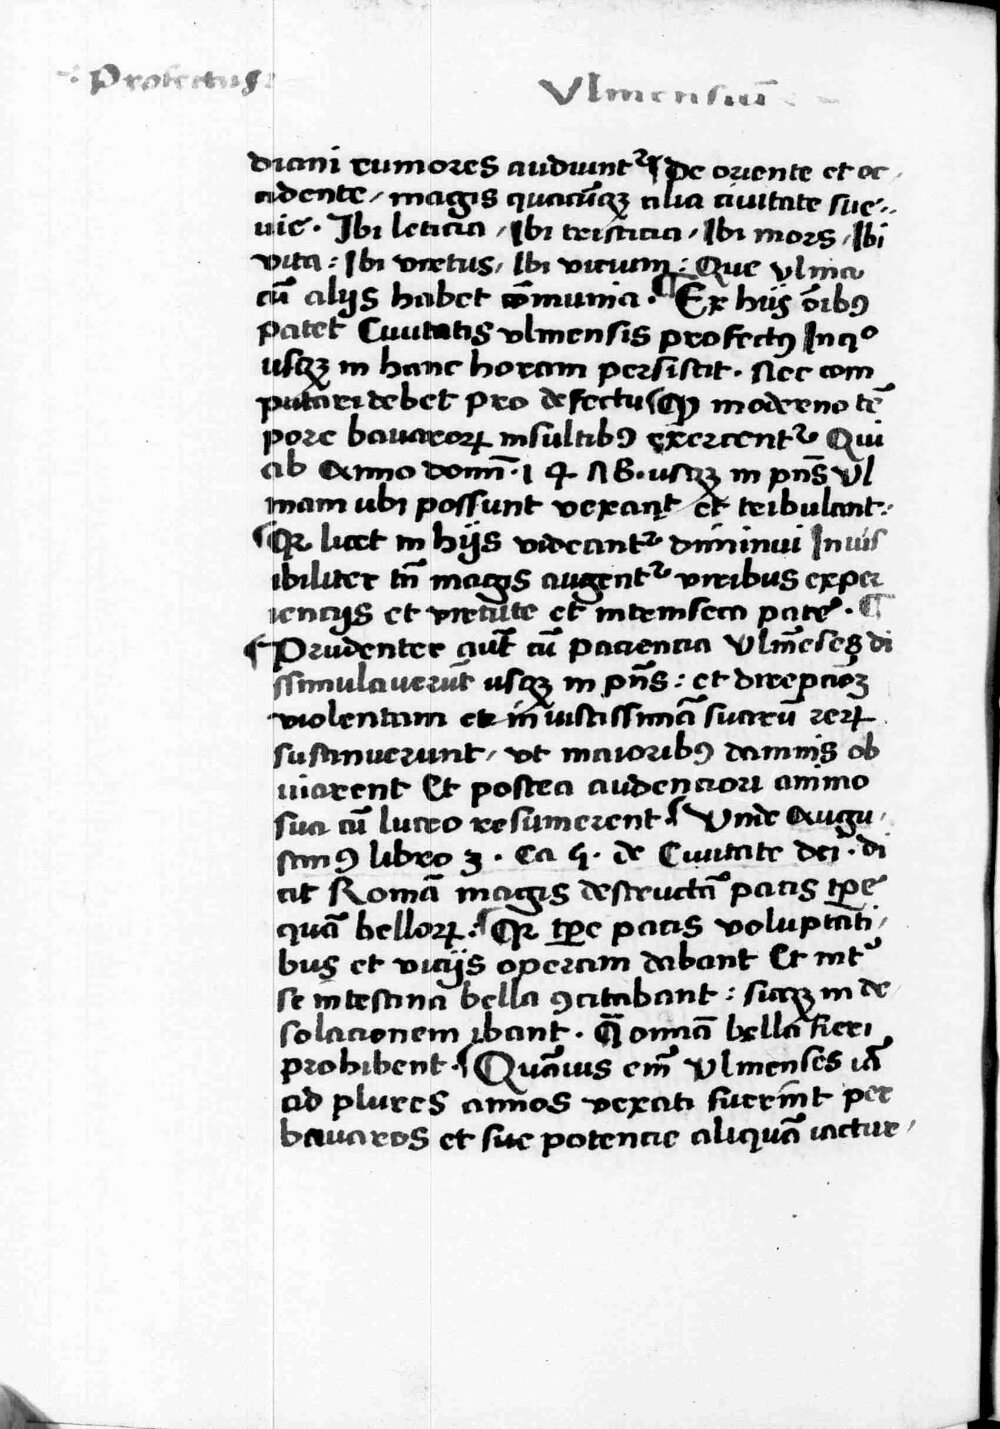 Profectus
Vlmensiū
diani rumores audiuntʳ ¶ De oriente et oc
cidente / magis quacūqꝫ alia ciuitate sue
uie . Ibi leticia / Ibi tristicia / Ibi mors / Ibi
vita : Ibi virtus / Ibi vicium : Que vlma
cū alijs habet cōmunia . ¶ Ex hiis oībꝰ
patet Ciuitatis vlmensis profectꝰ In qͦ
usqꝫ in hanc horam persistit . Nec com
putari debet pro defectu ꝙ moderno tē
pore bavaroꝝ insultibꝰ exercentʳ Qui
ab Anno domī . 1 4 Λ 8 . usqꝫ in pn̄s Vl
mam ubi possunt vexant et tribulant :
¶ Qꝛ licet in hijs videantʳ diminui Inuis
ibiliter tn̄ magis augentʳ viribus exper
iencijs et virtute et intrinseca pate . ¶
¶ Prudenter aut̄ cū paciencia Vlmēses di
ssimulauerūt usqꝫ in pn̄s : et direpcioēꝫ
violentam et iniustissimā suarū rerꝝ
sustinuerunt / vt maioribꝰ damnis ob
uiarent Et postea audenciori animo
sua cū lucro resumerent . ¶ Vnde Augu
stinꝰ libro 3 . Ca 5 . de Ciuitate dei . di
cit Romā magis destructā pacis tp̄e
quā belloꝝ . ¶ Qꝛ tp̄e pacis voluptati
bus et vicijs operam dabant Et int̉
se intestina bella ꝯcitabant : sicqꝫ in de
solacionem ibant . Q̄ omniā bella fieri
prohibent . ¶ Quāuis enī Vlmenses iā
ad plures annos vexati fuerint per
bauaros et sue potencie aliquā iactur